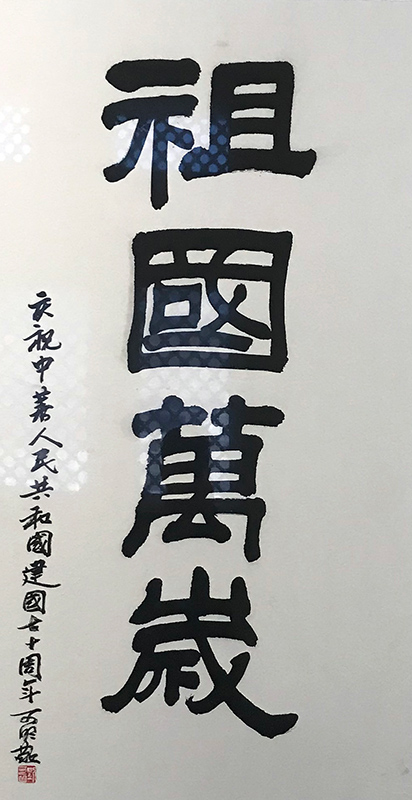 祖國萬歲
庆祝中華人民共和國建國七十周年